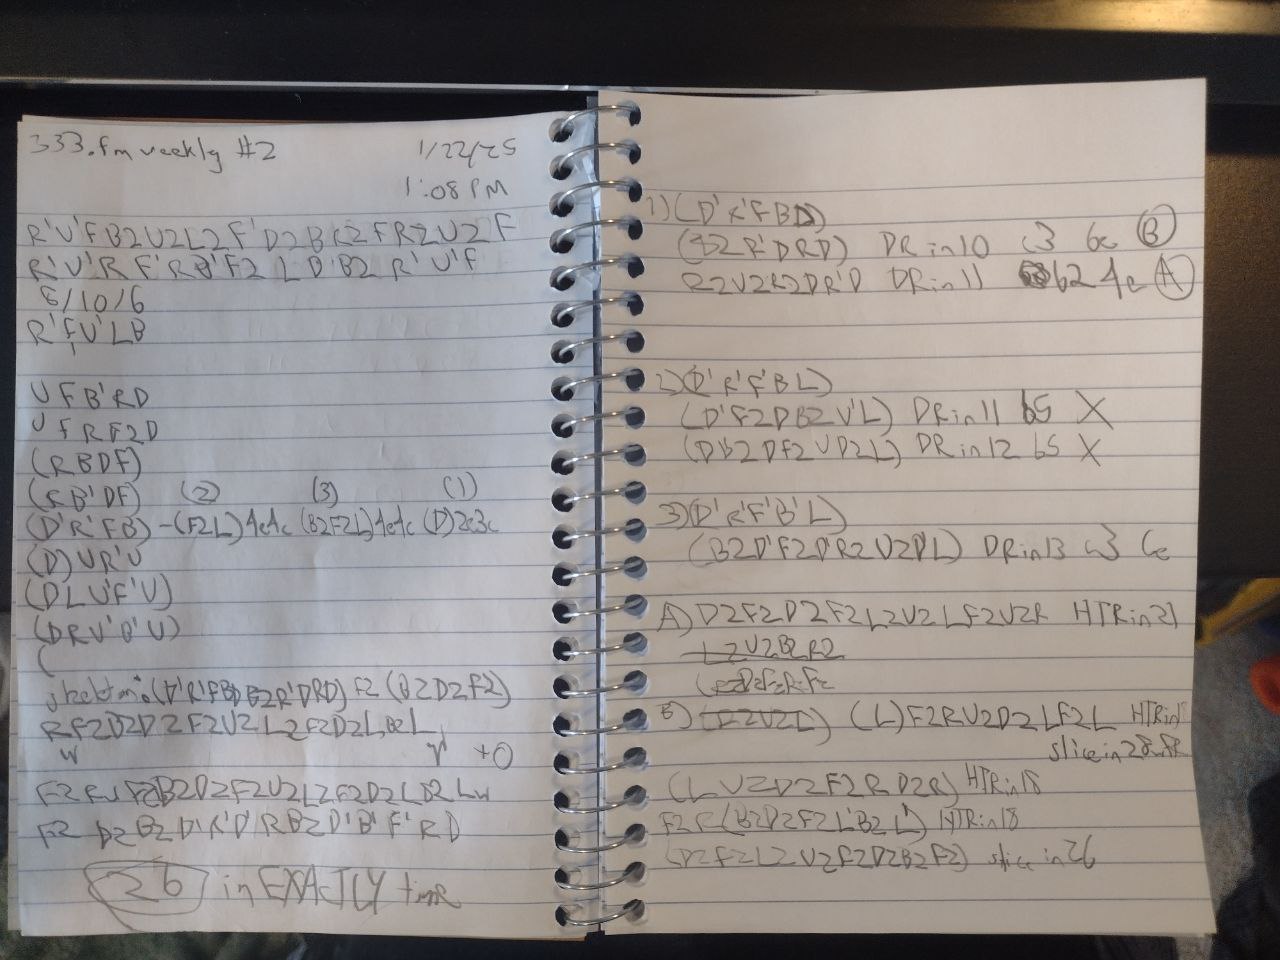 333.fm weekly #2 1/22/25
1:08 PM
R'U'F B2 U2 L2 F' D2 B R2 F R2 U2 F
R'U'R F' R F2 L D' B2 R' U' F
6/10/6
R' F U' L B
U F B' R D
U F R F2 D
(R B D F)
(R B' D F) (2) (3) (1)
(D'R'FB) - (F2L) 4e4c (B2F2L) 4e4c (D) 2e3c
(D) U R' U
(D L U' F' U)
(D R U' B' U)
(
skeleton: (D'R'FBDB2R'DRD) F2 (B2D2F2)
R F2 D2 D2 F2 U2 L2 F2 D2 L B2 L
w w' +0
F2 R w F2 B2 D2 F2 U2 L2 F2 D2 L B2 L w
F2 D2 B2 D' R' D' R B2 D' B' F' R D
26 in EXACTLY time
1) (D'R'FBD)
(B2 R'DRD) DR in 10 c3 6e (B)
R2U2R2DR'D DR in 11 b2 4e (A)
2) (D'R'F'BL)
(D'F2DB2U'L) DR in 11 b5 X
(DB2DF2UD2L) DR in 12 b5 X
3) (D'R'F'B'L)
(B2D'F2D'R2U2D'L) DR in 13 c3 6e
A) D2F2D2F2L2U2LF2U2R HTR in 21
L2U2B2R2
B) (F2U2L) (L)F2RU2D2LF2L HTR in 18
slice in 28
(L U2D2F2R D2R) HTR in 18
F2R(B2D2F2L'B2L') HTR in 18
(D2F2L2U2F2D2B2F2) slice in 26